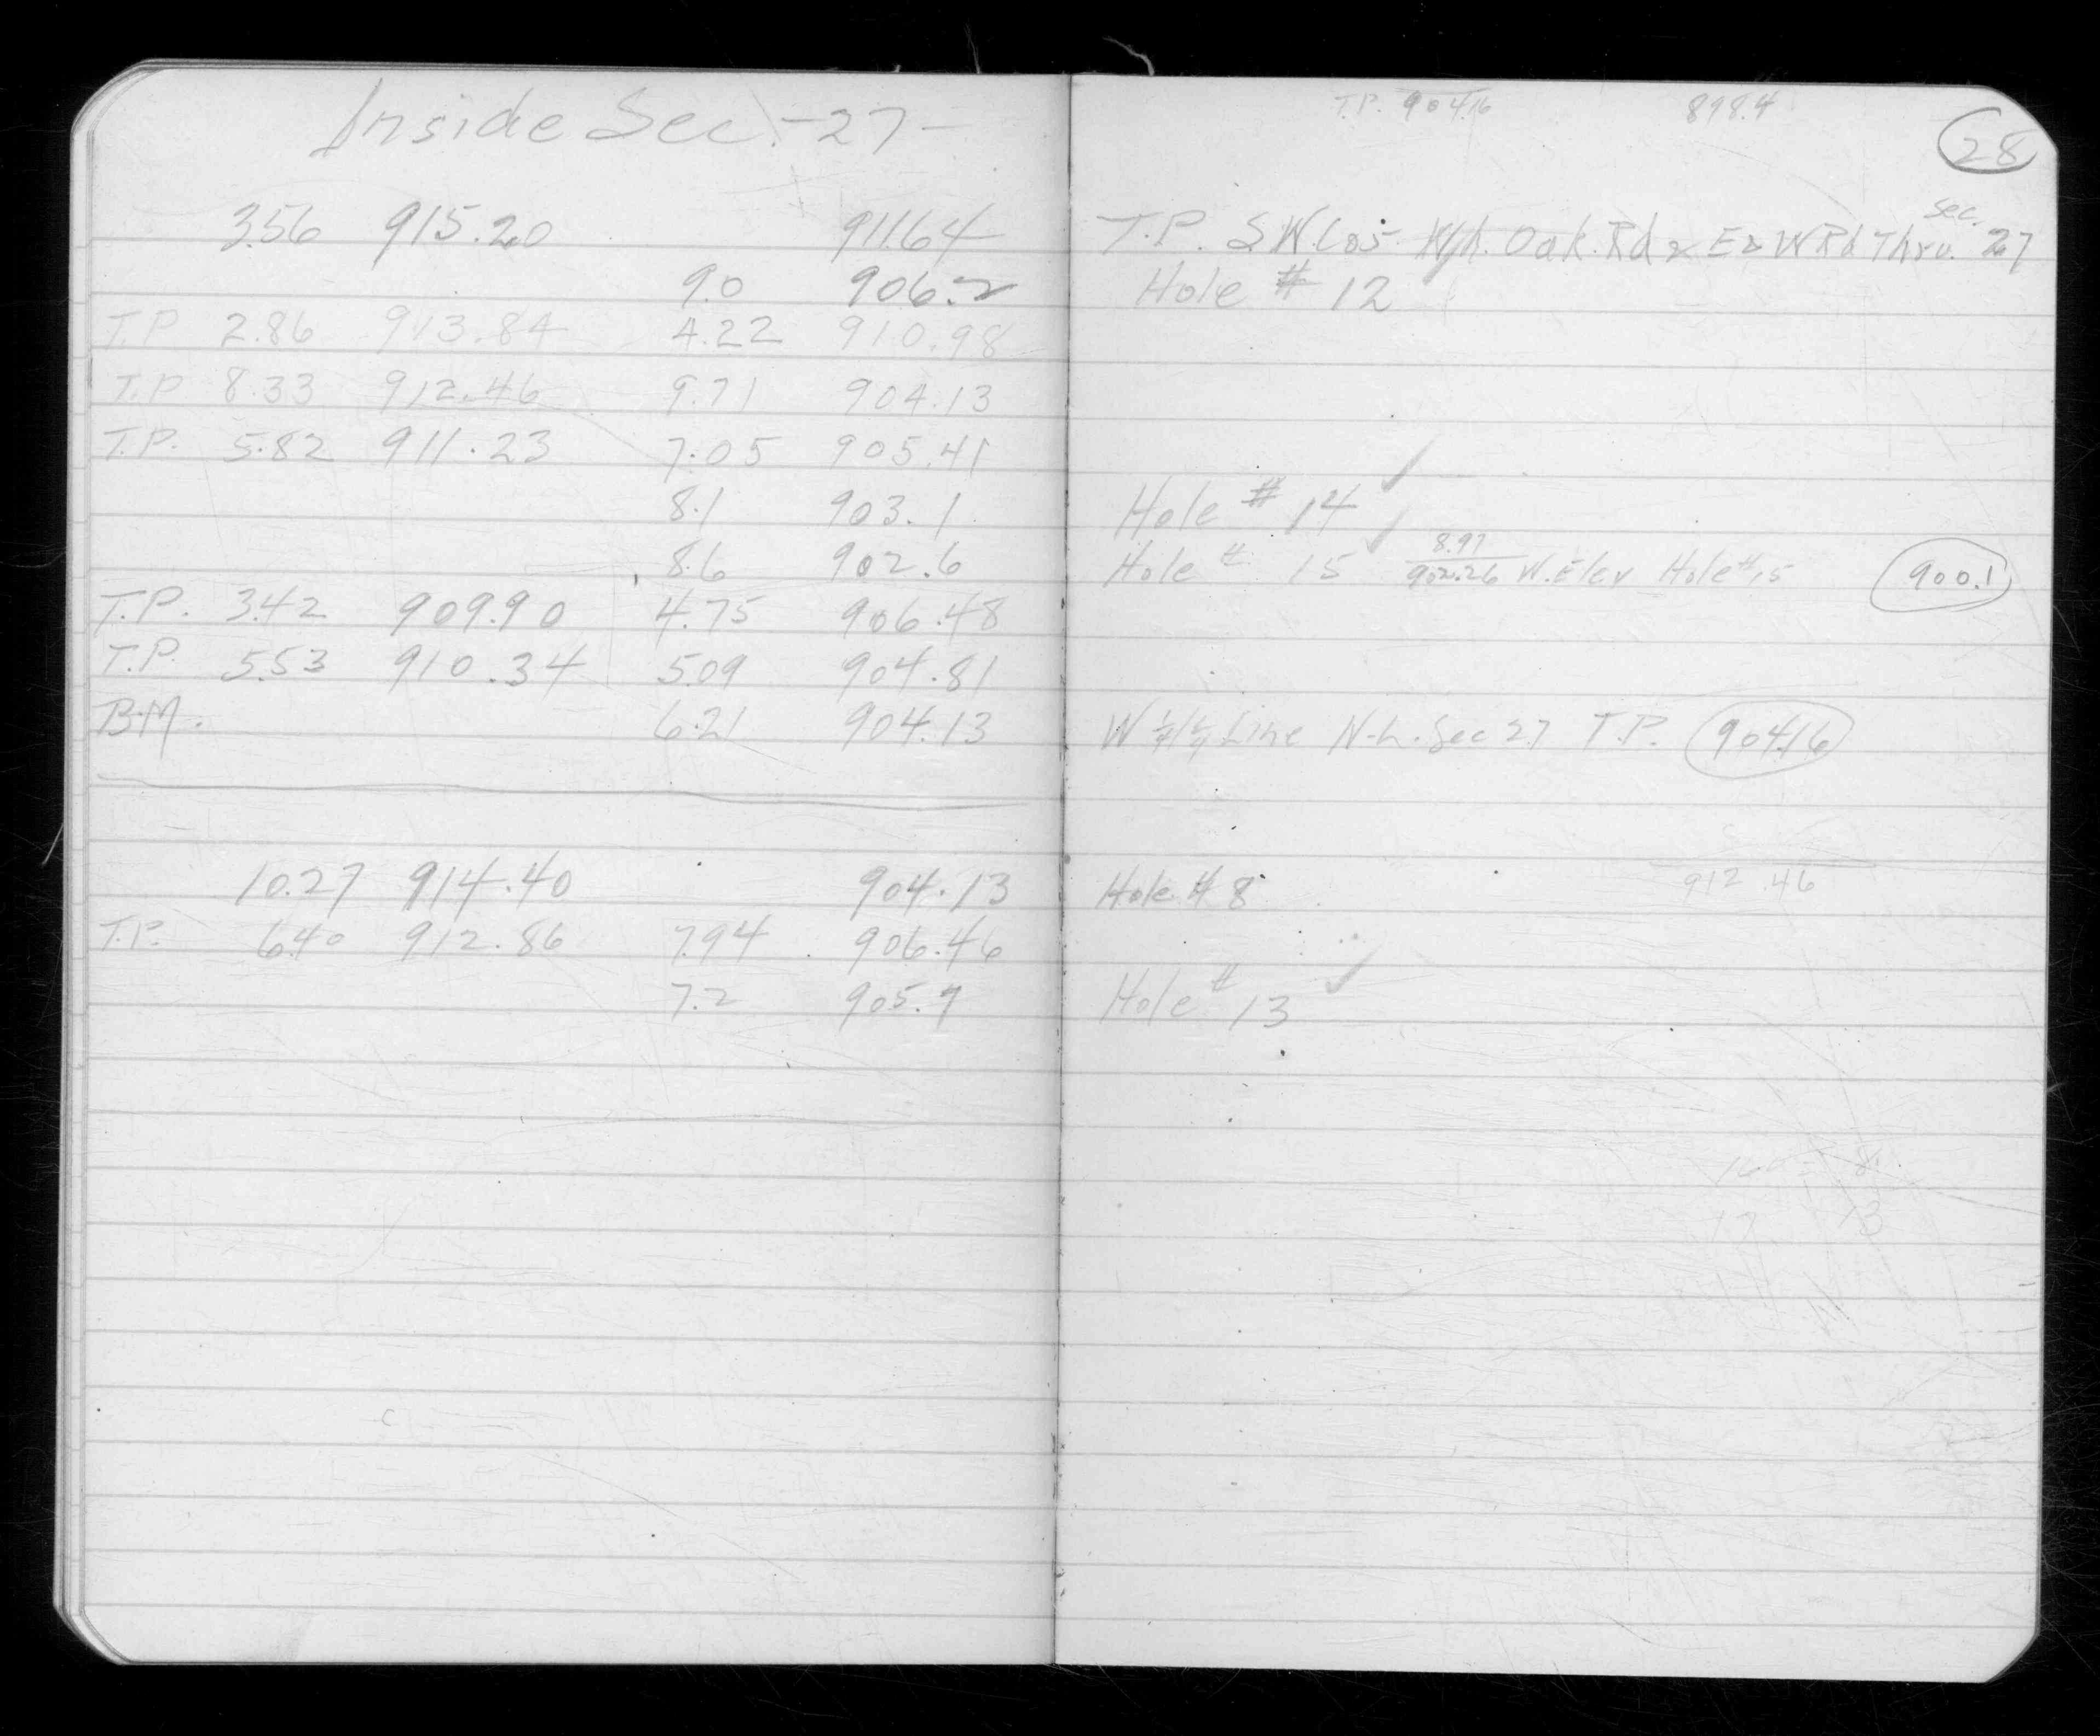 Inside Sec. -27-
3.56 915.20 911.64
9.0 906.2
T.P. 2.86 913.84 4.22 910.98
T.P. 8.33 912.46 9.71 904.13
T.P. 5.82 911.23 7.05 905.41
8.1 903.1
8.6 902.6
T.P. 3.42 909.90 4.75 906.48
T.P. 5.53 910.34 5.09 904.81
B.M. 6.21 904.13
10.27 914.40 904.13
T.P. 6.40 912.86 7.94 906.46
7.2 905.7
T.P. 904.16 898.4
28
sec.
T.P. S.W. Cor. Wh. Oak. Rd & E & W Rd Thru. 27
Hole # 12
Hole # 14 ✓
Hole # 15 ✓ 8.97
902.26 W. Elev Hole #15 900.1
W 1/4 1/4 Line N. L. Sec 27 T.P. 904.16
Hole # 8 912.46
Hole # 13 ✓
16 8
17 13